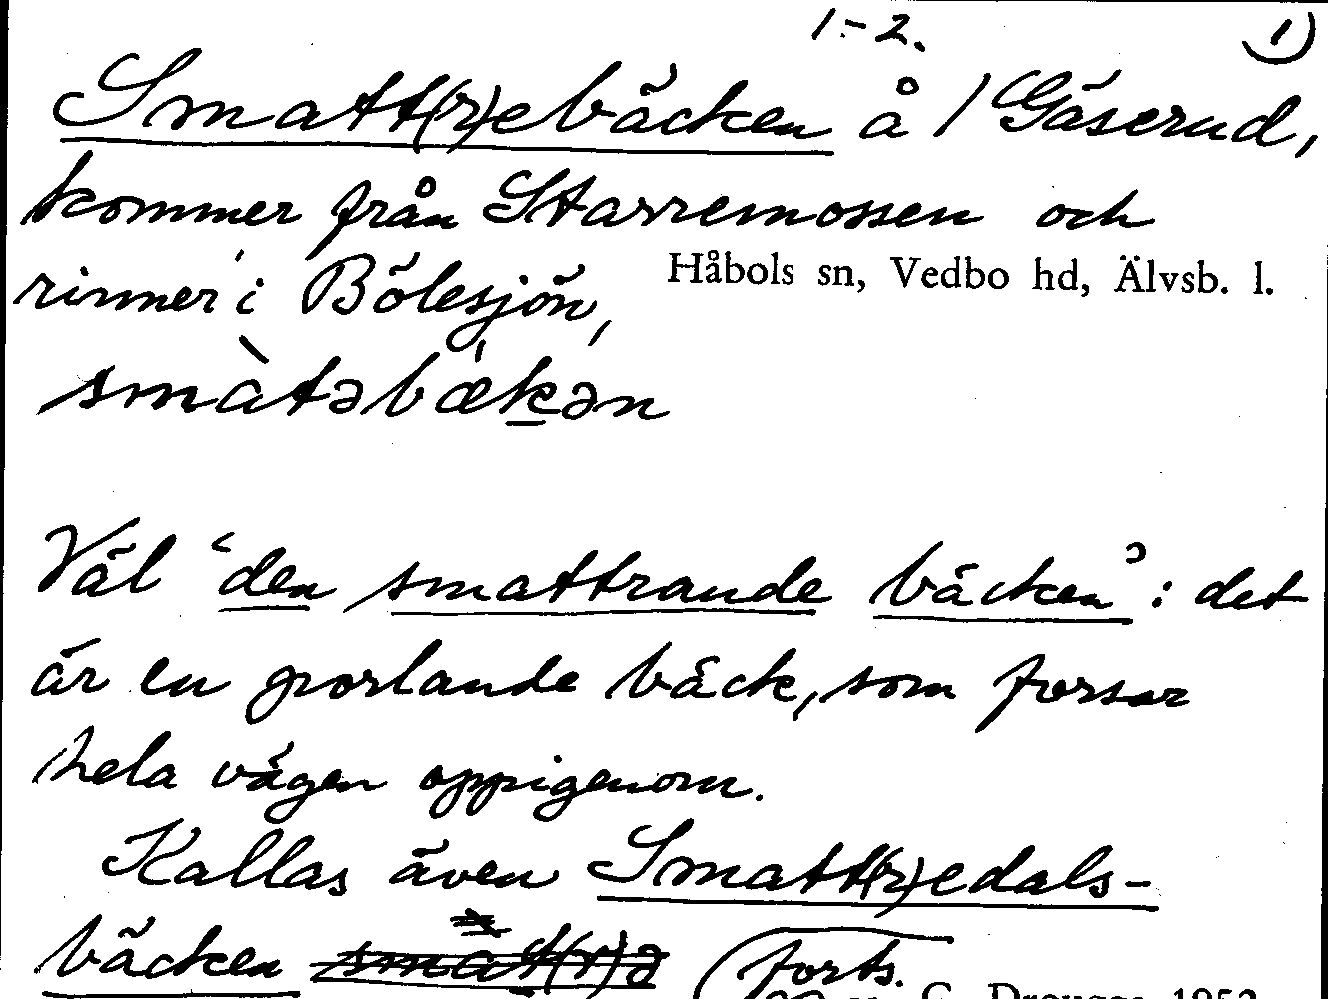 1.-2. 1)
Smatt(r)ebäcken å / Gäserud,
kommer från Starremossen och
rinner i Bölesjön,
Håbols sn, Vedbo hd, Älvsb. l.
smàtəbækən
Väl ‘den smattrande bäcken’: det
är en porlande bäck, som forsar
hela vägen oppigenom.
Kallas även Smatt(r)edals-
bäcken smat(r)ə (forts.